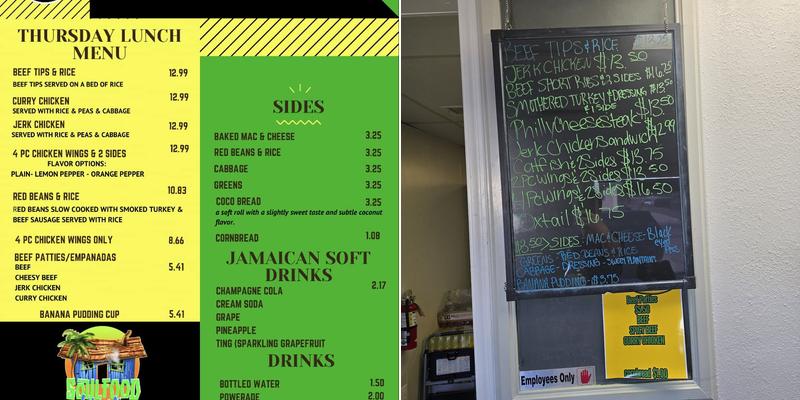 THURSDAY LUNCH
MENU
BEEF TIPS & RICE 12.99
BEEF TIPS SERVED ON A BED OF RICE
CURRY CHICKEN 12.99
SERVED WITH RICE & PEAS & CABBAGE
JERK CHICKEN 12.99
SERVED WITH RICE & PEAS & CABBAGE
4 PC CHICKEN WINGS & 2 SIDES 12.99
FLAVOR OPTIONS:
PLAIN- LEMON PEPPER - ORANGE PEPPER
RED BEANS & RICE 10.83
RED BEANS SLOW COOKED WITH SMOKED TURKEY &
BEEF SAUSAGE SERVED WITH RICE
4 PC CHICKEN WINGS ONLY 8.66
BEEF PATTIES/EMPANADAS
BEEF 5.41
CHEESY BEEF
JERK CHICKEN
CURRY CHICKEN
BANANA PUDDING CUP 5.41
SOULFOOD
SIDES
BAKED MAC & CHEESE 3.25
RED BEANS & RICE 3.25
CABBAGE 3.25
GREENS 3.25
COCO BREAD 3.25
a soft roll with a slightly sweet taste and subtle coconut
flavor.
CORNBREAD 1.08
JAMAICAN SOFT
DRINKS
CHAMPAGNE COLA 2.17
CREAM SODA
GRAPE
PINEAPPLE
TING (SPARKLING GRAPEFRUIT
DRINKS
BOTTLED WATER 1.50
POWERADE 2.00
BEEF TIPS & RICE
JERK CHICKEN $13.50
BEEF SHORT RIBS & 2 SIDES $16.75
SMOTHERED TURKEY & DRESSING $13.50
& 1 SIDE
Philly Cheesesteak $13.50
Jerk Chicken Sandwich $12.99
Catfish & 2 Sides $13.75
2 Pc wings & 2 Sides $12.50
4 Pc wings & 2 Sides $16.50
Oxtail $16.75
$3.50 > SIDES: MAC & CHEESE - Black
eyed
Peas
GREENS - RED BEANS & RICE
CABBAGE - DRESSING - SWEET PLANTAIN
BANANA PUDDING - $3.75
Beef Patties
BEEF
SPICY BEEF
CURRY CHICKEN
cornbread $1.00
Employees Only